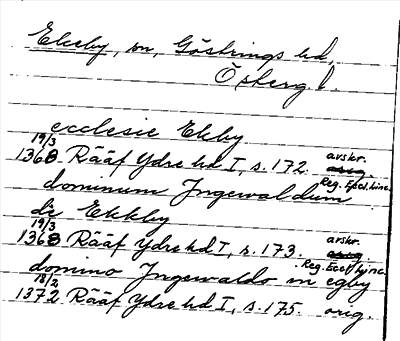 Ekeby, sn, Göstrings hd,
Österg. l.
ecclesie Ekby
19/3
1368 Rääf Ydre hd I, s. 172. avskr.
orig.
Reg. Eccl. Linc.
dominum Jngewaldum
de Ekkby
19/3
1368 Rääf Ydre hd I, s. 173. avskr.
orig.
Reg. Eccl. Linc.
domino Jngewaldo in egby
18/2
1372 Rääf Ydre hd I, s. 175. orig.